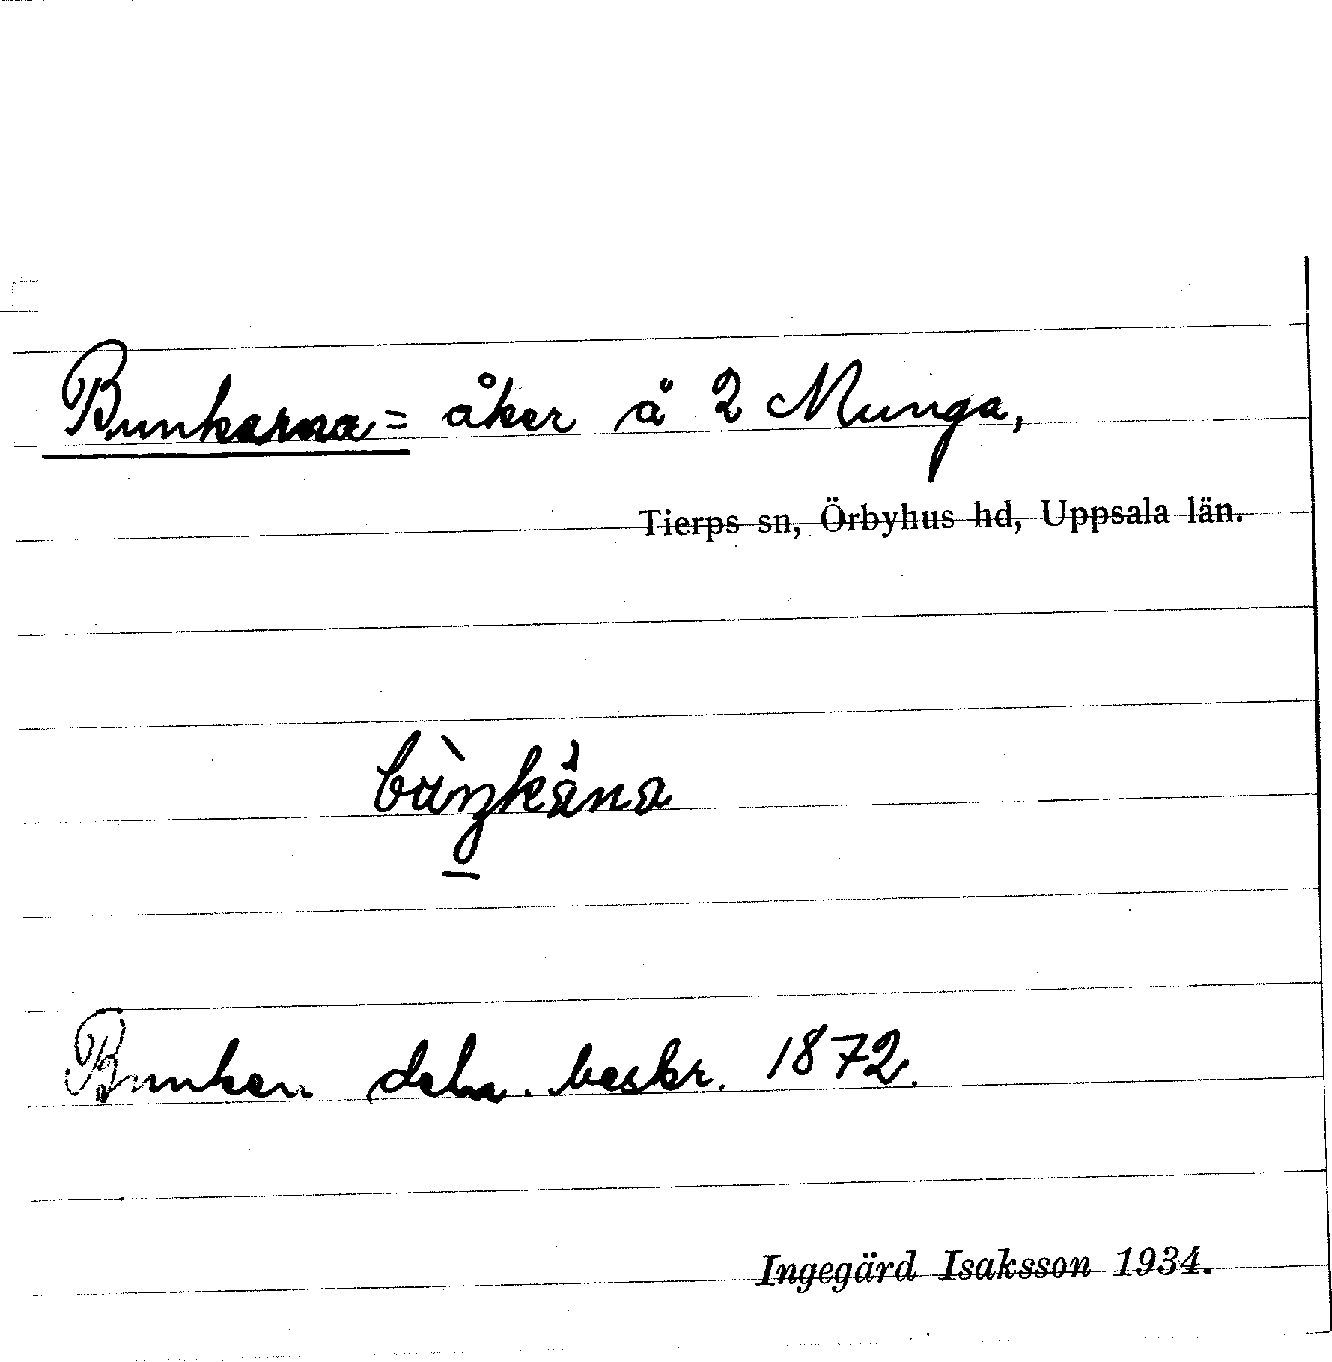 Bunkarna = åker å 2 Munga,
Tierps sn, Örbyhus hd, Uppsala län.
Bunken deln. beskr. 1872.
Ingegärd Isaksson 1934.